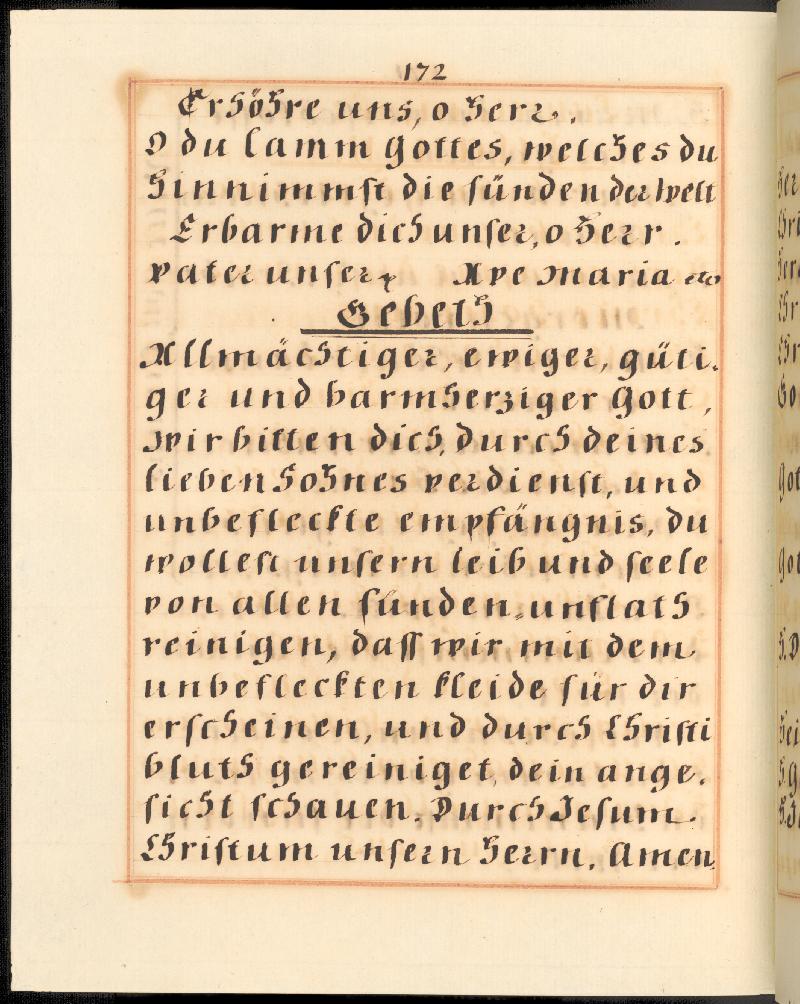 172
Erhöhre uns, o herr.
O du lamm Gottes, welches du
hinnimmst die sünden der welt
Erbarme dich unser, o herr.
vater unser Ave maria
Gebeth
Allmächtiger, ewiger, güti.
ger und barmherziger Gott,
wir bitten dich, durch deines
lieben Sohnes verdienst, und
unbefleckte empfängnis, du
wollest unsern leib und seele
von allen sünden-unflath
reinigen, dass wir mit dem
unbefleckten kleide für dir
erscheinen, und durch Christi
bluth gereiniget, dein ange.
sicht schauen. Durch Jesum
Christum unsern herrn. Amen